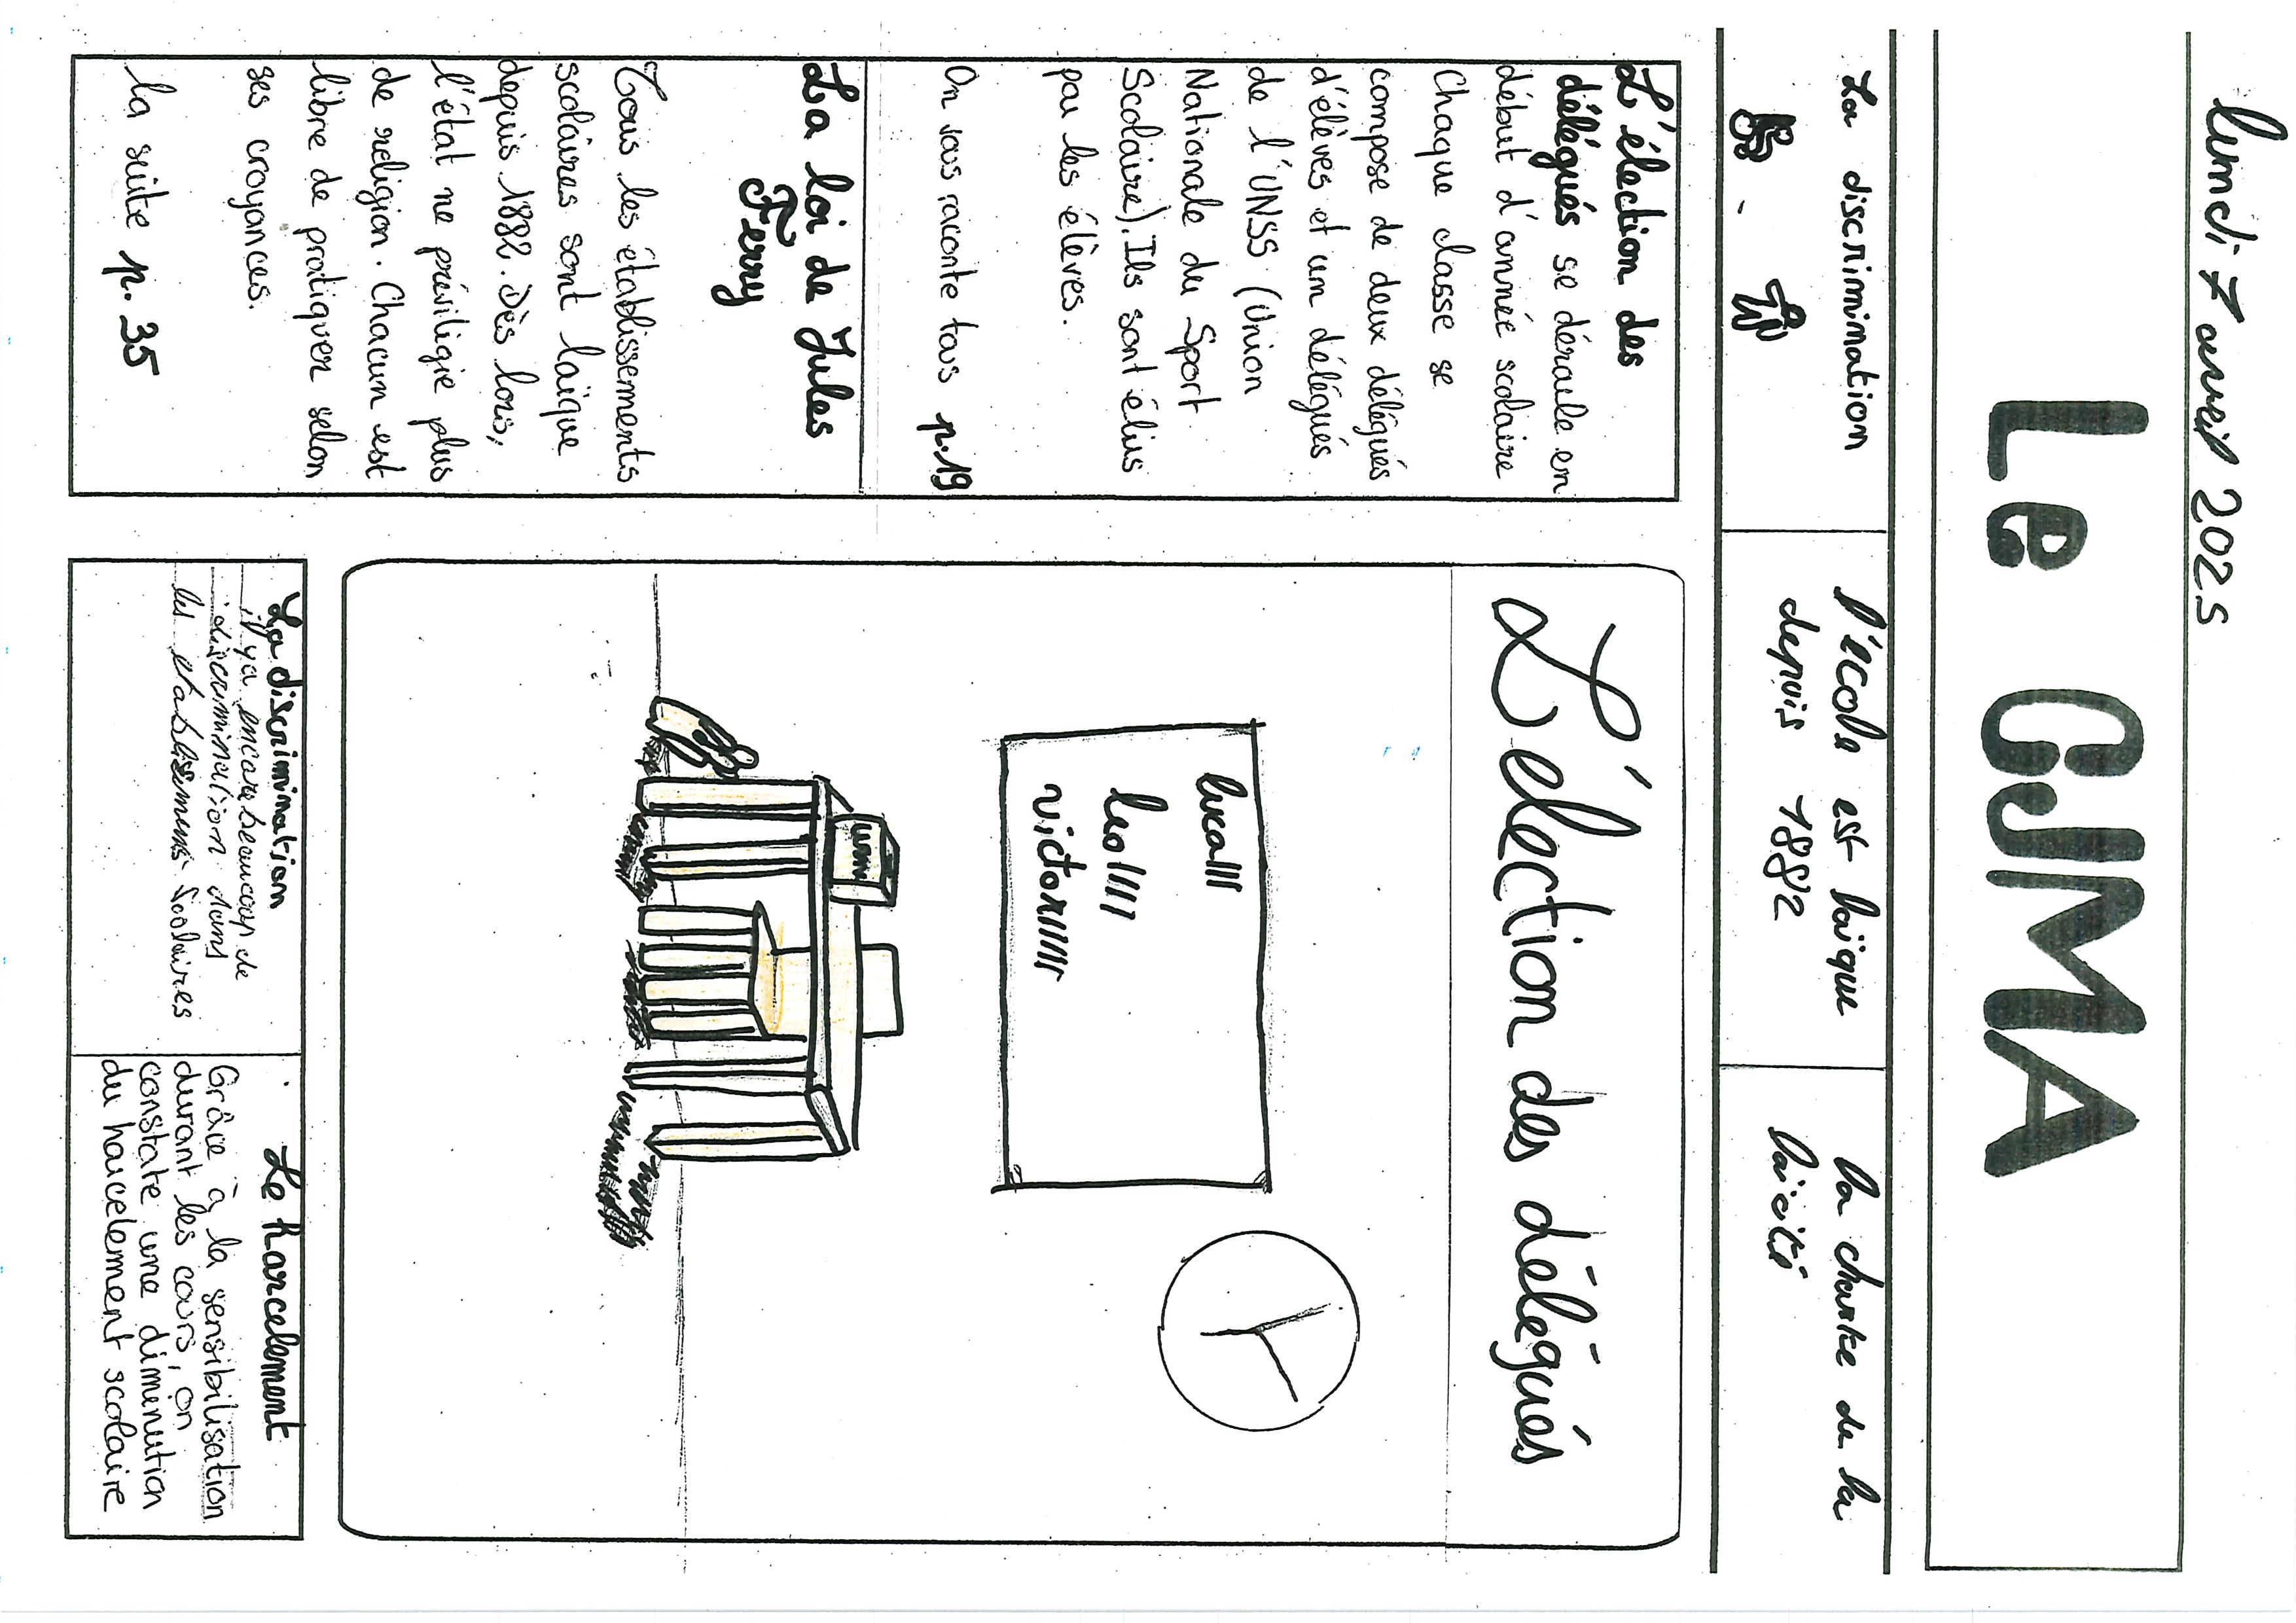 lundi 7 avril 2025
Le CJMA
La discrimination
l'école est laïque
depuis 1882
la charte de la
laïcité
L'élection des
délégués se déroule en
début d'année scolaire
Chaque classe se
compose de deux délégués
d'élèves et un délégués
de l'UNSS (Union
Nationale du Sport
Scolaire). Ils sont élus
par les élèves.
On vous raconte tous p.19
La loi de Jules
Ferry
Tous les établissements
scolaires sont laïque
depuis 1882. Dès lors,
l'état ne préviligie plus
de religion. Chacun est
libre de pratiquer selon
ses croyances.
la suite p.35
L'élection des délégués
luca III
leo IIII
victor IIIIII
urne
La discrimination
il y a encore beaucoup de
discrimination dans
les etablissements scolaires
Le harcelement
Grâce à la sensibilisation
durant les cours, on
constate une diminution
du harcelement scolaire